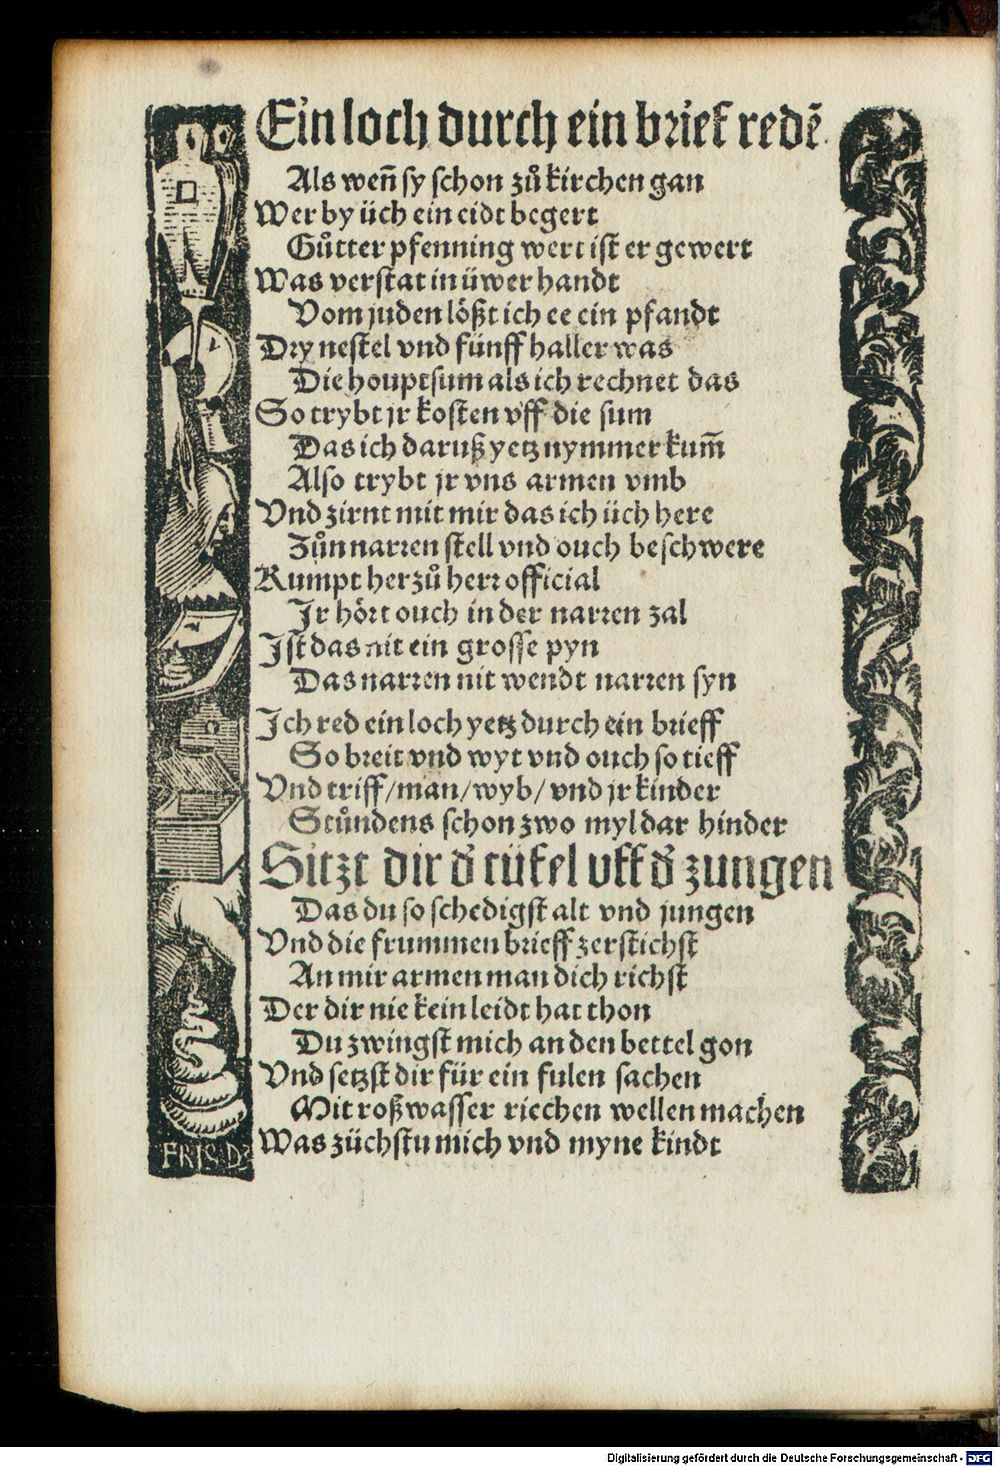 Ein loch durch ein brief redē
Als weñ sy schon zů kirchen gan
Wer by üch ein eidt begert
Gůtter pfenning wert ist er gewert
Was verstat in üwer handt
Vom juden lößt ich ee ein pfandt
Dry nestel vnd fünff haller was
Die houptsum als ich rechnet das
So trybt jr kosten vff die sum
Das ich daruß yetz nymmer kum̃
Also trybt jr vns armen vmb
Vnd zirnt mit mir das ich üch here
Zůn narren stell vnd ouch beschwere
Kumpt herzů herr official
Jr hört ouch in der narren zal
Jst das nit ein grosse pyn
Das narren nit wendt narren syn
Ich red ein loch yetz durch ein brieff
So breit vnd wyt vnd ouch so tieff
Vnd triff/man/wyb/vnd jr kinder
Stůndens schon zwo myl dar hinder
Sitzt dir d̄ tüfel vff d̄ zungen
Das du so schedigst alt vnd jungen
Vnd die frummen brieff zerstichst
An mir armen man dich richst
Der dir nie kein leidt hat thon
Du zwingst mich an den bettel gon
Vnd setzst dir für ein fulen sachen
Mit roßwasser riechen wellen machen
Was züchstu mich vnd myne kindt
Digitalisierung gefördert durch die Deutsche Forschungsgemeinschaft - DFG